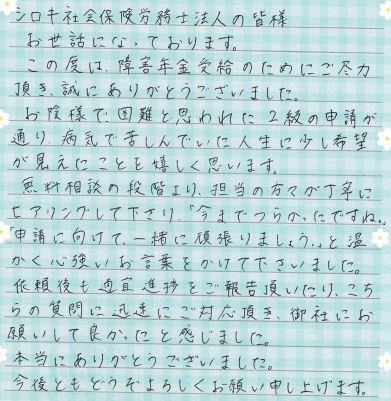 シロキ社会保険労務士法人の皆様
お世話になっております。
この度は、障害年金受給のためにご尽力
頂き、誠にありがとうございました。
お陰様で、困難と思われた2級の申請が
通り、病気で苦しんでいた人生に少し希望
が見えたことを嬉しく思います。
無料相談の段階より、担当の方々が丁寧に
ヒアリングして下さり、「今までつらかったですね。」
「申請に向けて、一緒に頑張りましょう。」と温
かく心強いお言葉をかけて下さいました。
依頼後も適宜進捗をご報告頂いたり、こち
らの質問に迅速にご対応頂き、御社にお
願いして良かったと感じました。
本当にありがとうございました。
今後ともどうぞよろしくお願い申し上げます。